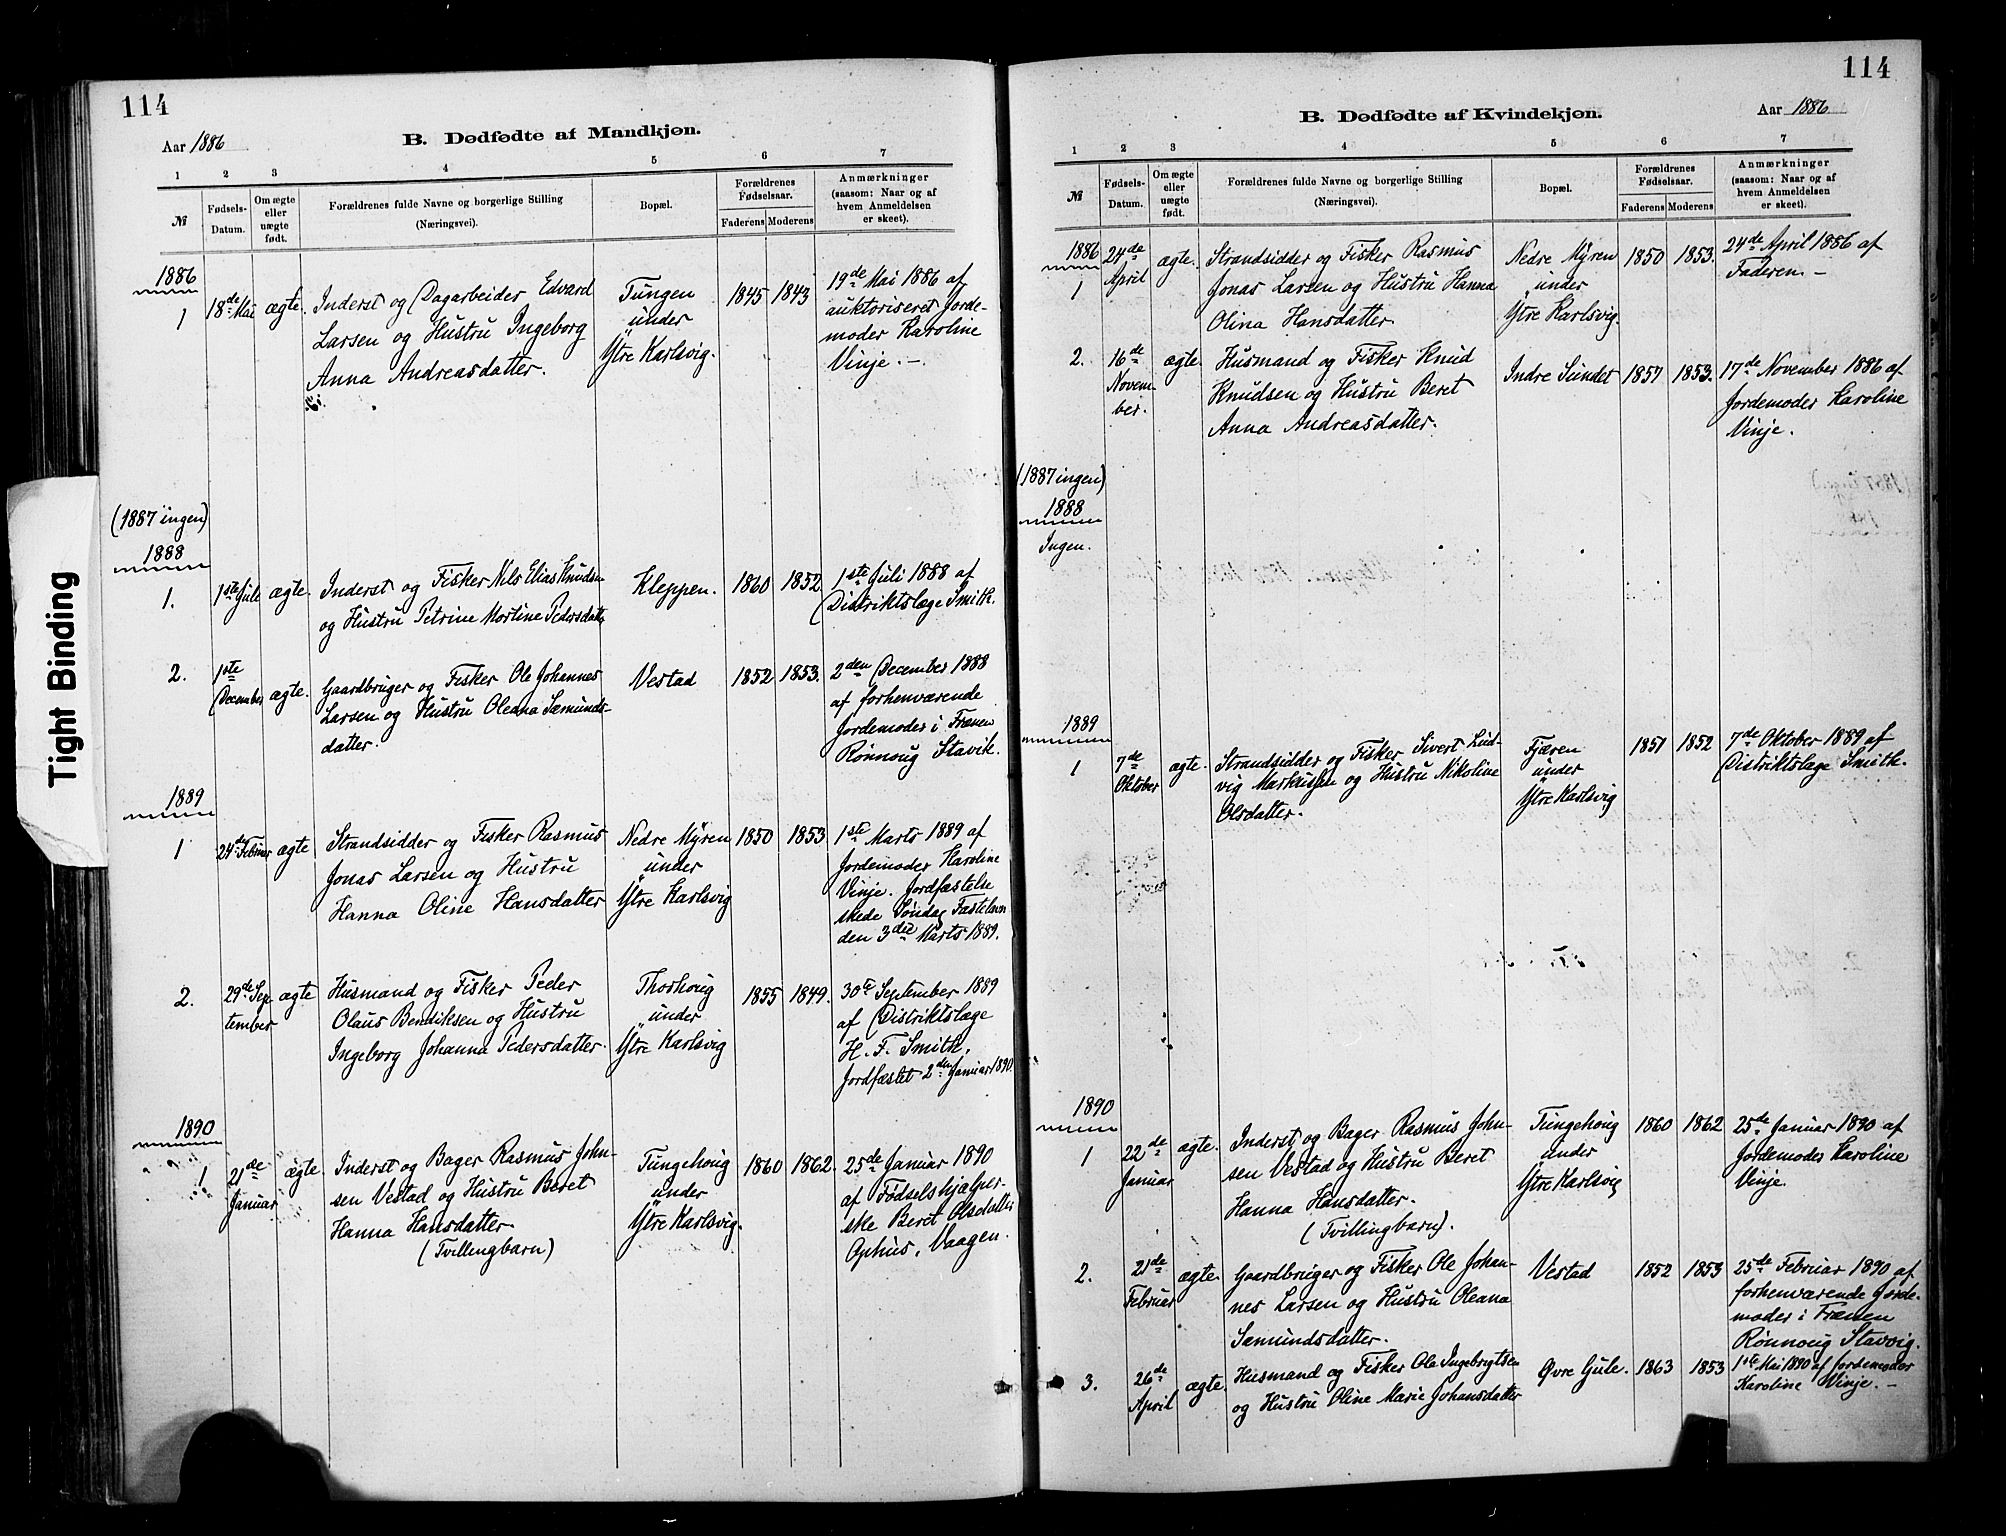 114
Aar 1886
B. Dødfødte af Mandkjøn.
1 2 3 4 5 6 7
№
Fødsels-
Datum.
Om ægte
eller
uægte
født.
Forældrenes fulde Navne og borgerlige Stilling
(Næringsvei).
Bopæl.
Forældrenes
Fødselsaar.
Faderens Moderens
Anmærkninger
(saasom: Naar og af
hvem Anmeldelsen
er skeet).
1886
1
18de Mai
ægte.
Inderst og Dagarbeider Edvard
Larsen og Hustru Ingeborg
Anna Andreasdatter.
Tungen
under
Ytre Karlsvig.
1845 1843
19de Mai 1886 af
auktoriseret Jorde-
moder Karoline
Vinje. —
(1887 ingen)
1888
1.
1ste Juli
ægte.
Inderst og Fisker Nils Elias Knudsen
og Hustru Petrine Martine Pedersdatter
Kleppen.
1860 1852
1ste Juli 1888 af
Distriktslæge Smith.
2.
1ste
December
ægte.
Gaardbruger og Fisker Ole Johannes
Larsen og Hustru Oleana Sæmunds-
datter.
Vestad
1852 1853.
2den December 1888
af forhenværende
Jordemoder i Frænen
Rønnoug Stavik.
1889
1
24de Februar
ægte
Strandsidder og Fisker Rasmus
Jonas Larsen og Hustru
Hanna Oline Hansdatter
Nedre Myren
under
Ytre Karlsvig
1850 1853
1ste Marts 1889 af
Jordemoder Karoline
Vinje. Jordfæstelse
skede Søndag Fastelavn
den 3die Marts 1889.
2.
29de Sep
tember
ægte
Husmand og Fisker Peder
Olaus Bendiksen og Hustru
Ingeborg Johanna Pedersdatter.
Thorhoug
under
Ytre Karlsvig
1855 1849.
30te September 1889
af Distriktslæge
H. F. Smith.
Jordfæstet 2den Januar 1890.
1890
1
21de
Januar
ægte
Inderst og Bager Rasmus John-
sen Vestad og Hustru Beret
Hanna Hansdatter.
(Tvillingbarn)
Tungehoug
under
Ytre Karlsvig.
1860 1862.
25de Januar 1890
af Fødselshjælper-
ske Beret Olsdatter
Ophus, Vaagen.
114
Aar 1886
B. Dødfødte af Kvindekjøn.
1 2 3 4 5 6 7
№
Fødsels-
Datum.
Om ægte
eller
uægte
født.
Forældrenes fulde Navne og borgerlige Stilling
(Næringsvei).
Bopæl.
Forældrenes
Fødselsaar.
Faderens Moderens
Anmærkninger
(saasom: Naar og af
hvem Anmeldelsen
er skeet).
1886
1
24de
April
ægte.
Strandsidder og Fisker Rasmus
Jonas Larsen og Hustru Hanna
Olina Hansdatter.
Nedre Myren
under
Ytre Karlsvig.
1850 1853.
24de April 1886 af
Faderen. —
2.
16de
Novem-
ber.
ægte.
Husmand og Fisker Knud
Knudsen og Hustru Beret
Anna Andreasdatter.
Indre Sundet
1857 1853.
17de November 1886 af
Jordemoder Karoline
Vinje.
(1887 ingen)
1888
Ingen.
1889
1
7de
Oktober
ægte.
Strandsidder og Fisker Sivert Lud-
vig Markussen og Hustru Nikoline
Olsdatter.
Fjæren
under
Ytre Karlsvig
1851 1852
7de Oktober 1889 af
Distriktslæge Smith.
1890
1
22de
Januar
ægte.
Inderst og Bager Rasmus John-
sen Vestad og Hustru Beret
Hanna Hansdatter.
(Tvillingbarn).
Tungehoug
under
Ytre Karlsvig
1860 1862
25de Januar 1890 af
Jordemoder Karoline
Vinje.
2.
21de
Februar
ægte.
Gaardbruger og Fisker Ole Johan-
nes Larsen og Hustru Oleana
Sæmundsdatter.
Vestad
1852 1853
25de Februar 1890 af
forhenværende Jorde-
moder i Frænen
Rønnoug Stavvig.
3.
26de
April
ægte.
Husmand og Fisker Ole Ingebrigtsen
og Hustru Oline Marie Johansdatter
Øvre Gule.
1863 1853
1ste Mai 1890 af Jordemoder
Karoline Vinje. —
Tight Binding